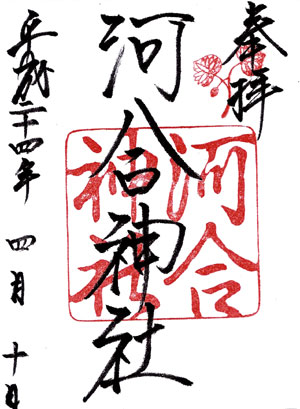 奉拝
河合神社
河合
神社
平成二十四年 四月 十日